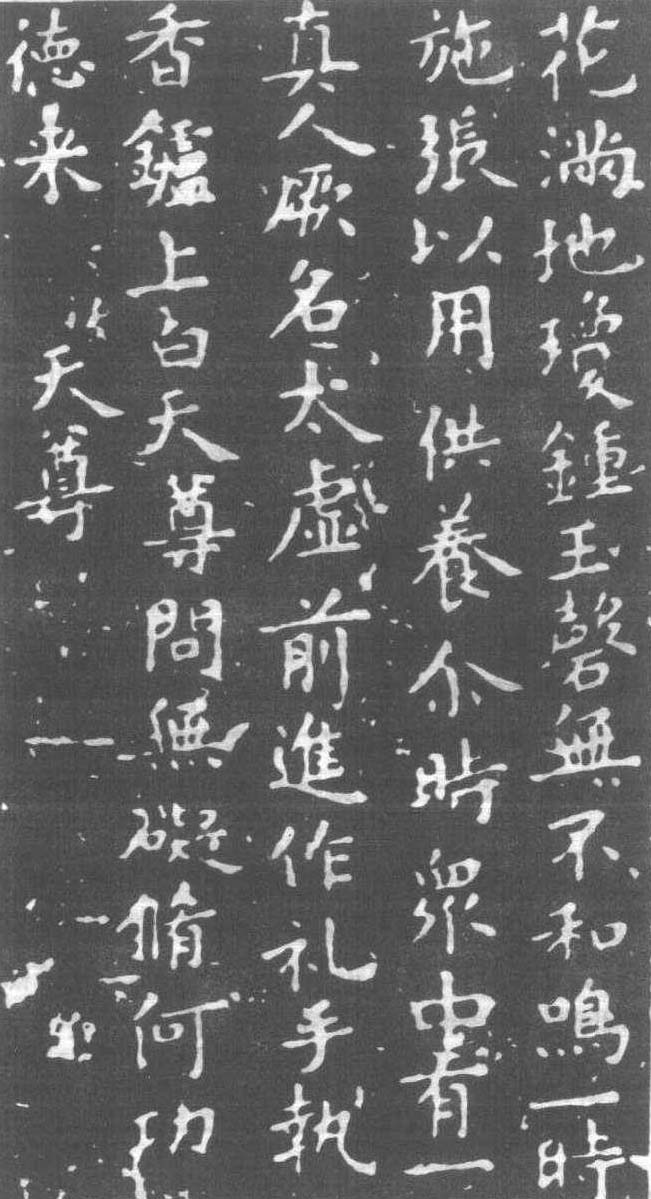 花滿地瓊鍾玉磬無不和鳴一時
施張以用供養尒時眾中有一
真人厥名太虛前進作礼手執
香鑪上白天尊問無礙脩何功
德来天尊